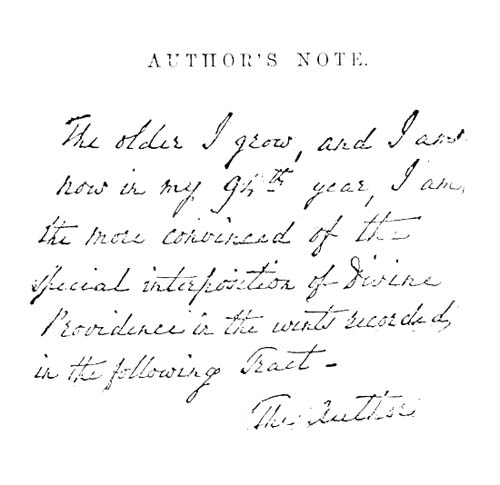 AUTHOR'S NOTE.
The older I grow, and I am
now in my 94th year, I am,
the more convinced of the
special interposition of Divine
Providence in the events recorded,
in the following Tract –
The Author